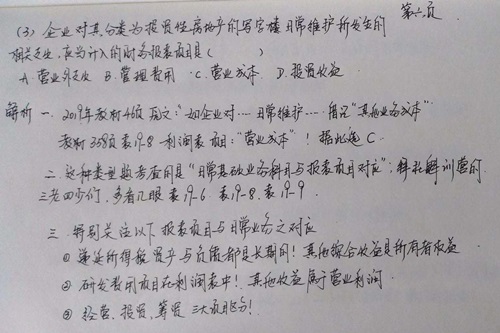 第六页
(3) 企业对其分类为投资性房地产的写字楼日常维护所发生的
相关支出,应当计入的财务报表项目是( )
A.营业外支出 B.管理费用 C.营业成本 D.投资收益
解析 一、2019年教材46页原文:"如企业对…日常维护…借记"其他业务成本"
教材358页表19-8 利润表项目:"营业成本"!据此选C.
二、这种类型题考查的是"日常基础业务科目与报表项目对应",训营的
三老四少们,多看几眼表19-6、表19-8、表19-9
三、特别关注以下报表项目与日常业务之对应
①递延所得税资产与负债都是长期的!其他综合收益是所有者权益
②研发费用项目在利润表中!其他收益属于营业利润
③经营、投资、筹资三大项区分!